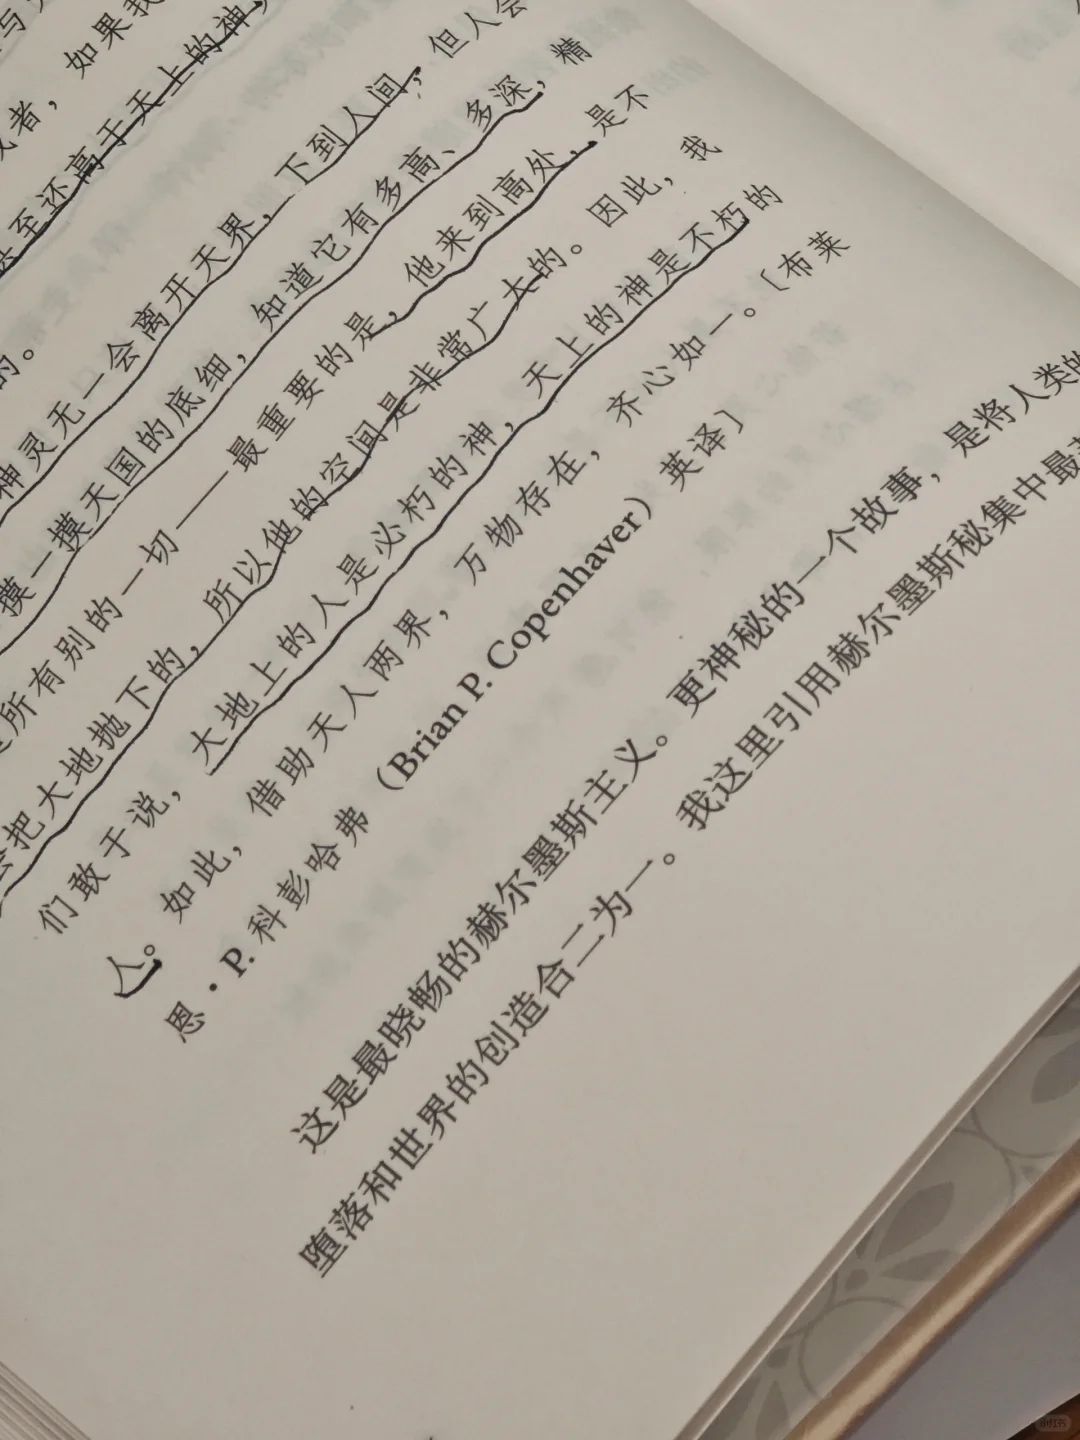 或者，如果我
甚至还高于天上的神，
的。
神灵无一会离开天界，下到人间，但人会
摸一摸天国的底细，知道它有多高、多深，精
所有别的一切——最重要的是，他来到高处，是不
会把大地抛下的，所以他的空间是非常广大的。因此，我
们敢于说，大地上的人是必朽的神，天上的神是不朽的
人。如此，借助天人两界，万物存在，齐心如一。〔布莱
恩·P. 科彭哈弗（Brian P. Copenhaver）英译〕
这是最晓畅的赫尔墨斯主义。更神秘的一个故事，是将人类的
堕落和世界的创造合二为一。我这里引用赫尔墨斯秘集中最
小红书